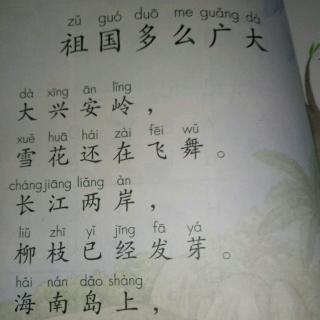 zǔ guó duō me guǎng dà
祖国多么广大
dà xīng ān lǐng
大兴安岭，
xuě huā hái zài fēi wǔ
雪花还在飞舞。
cháng jiāng liǎng àn
长江两岸，
liǔ zhī yǐ jīng fā yá
柳枝已经发芽。
hǎi nán dǎo shàng
海南岛上，